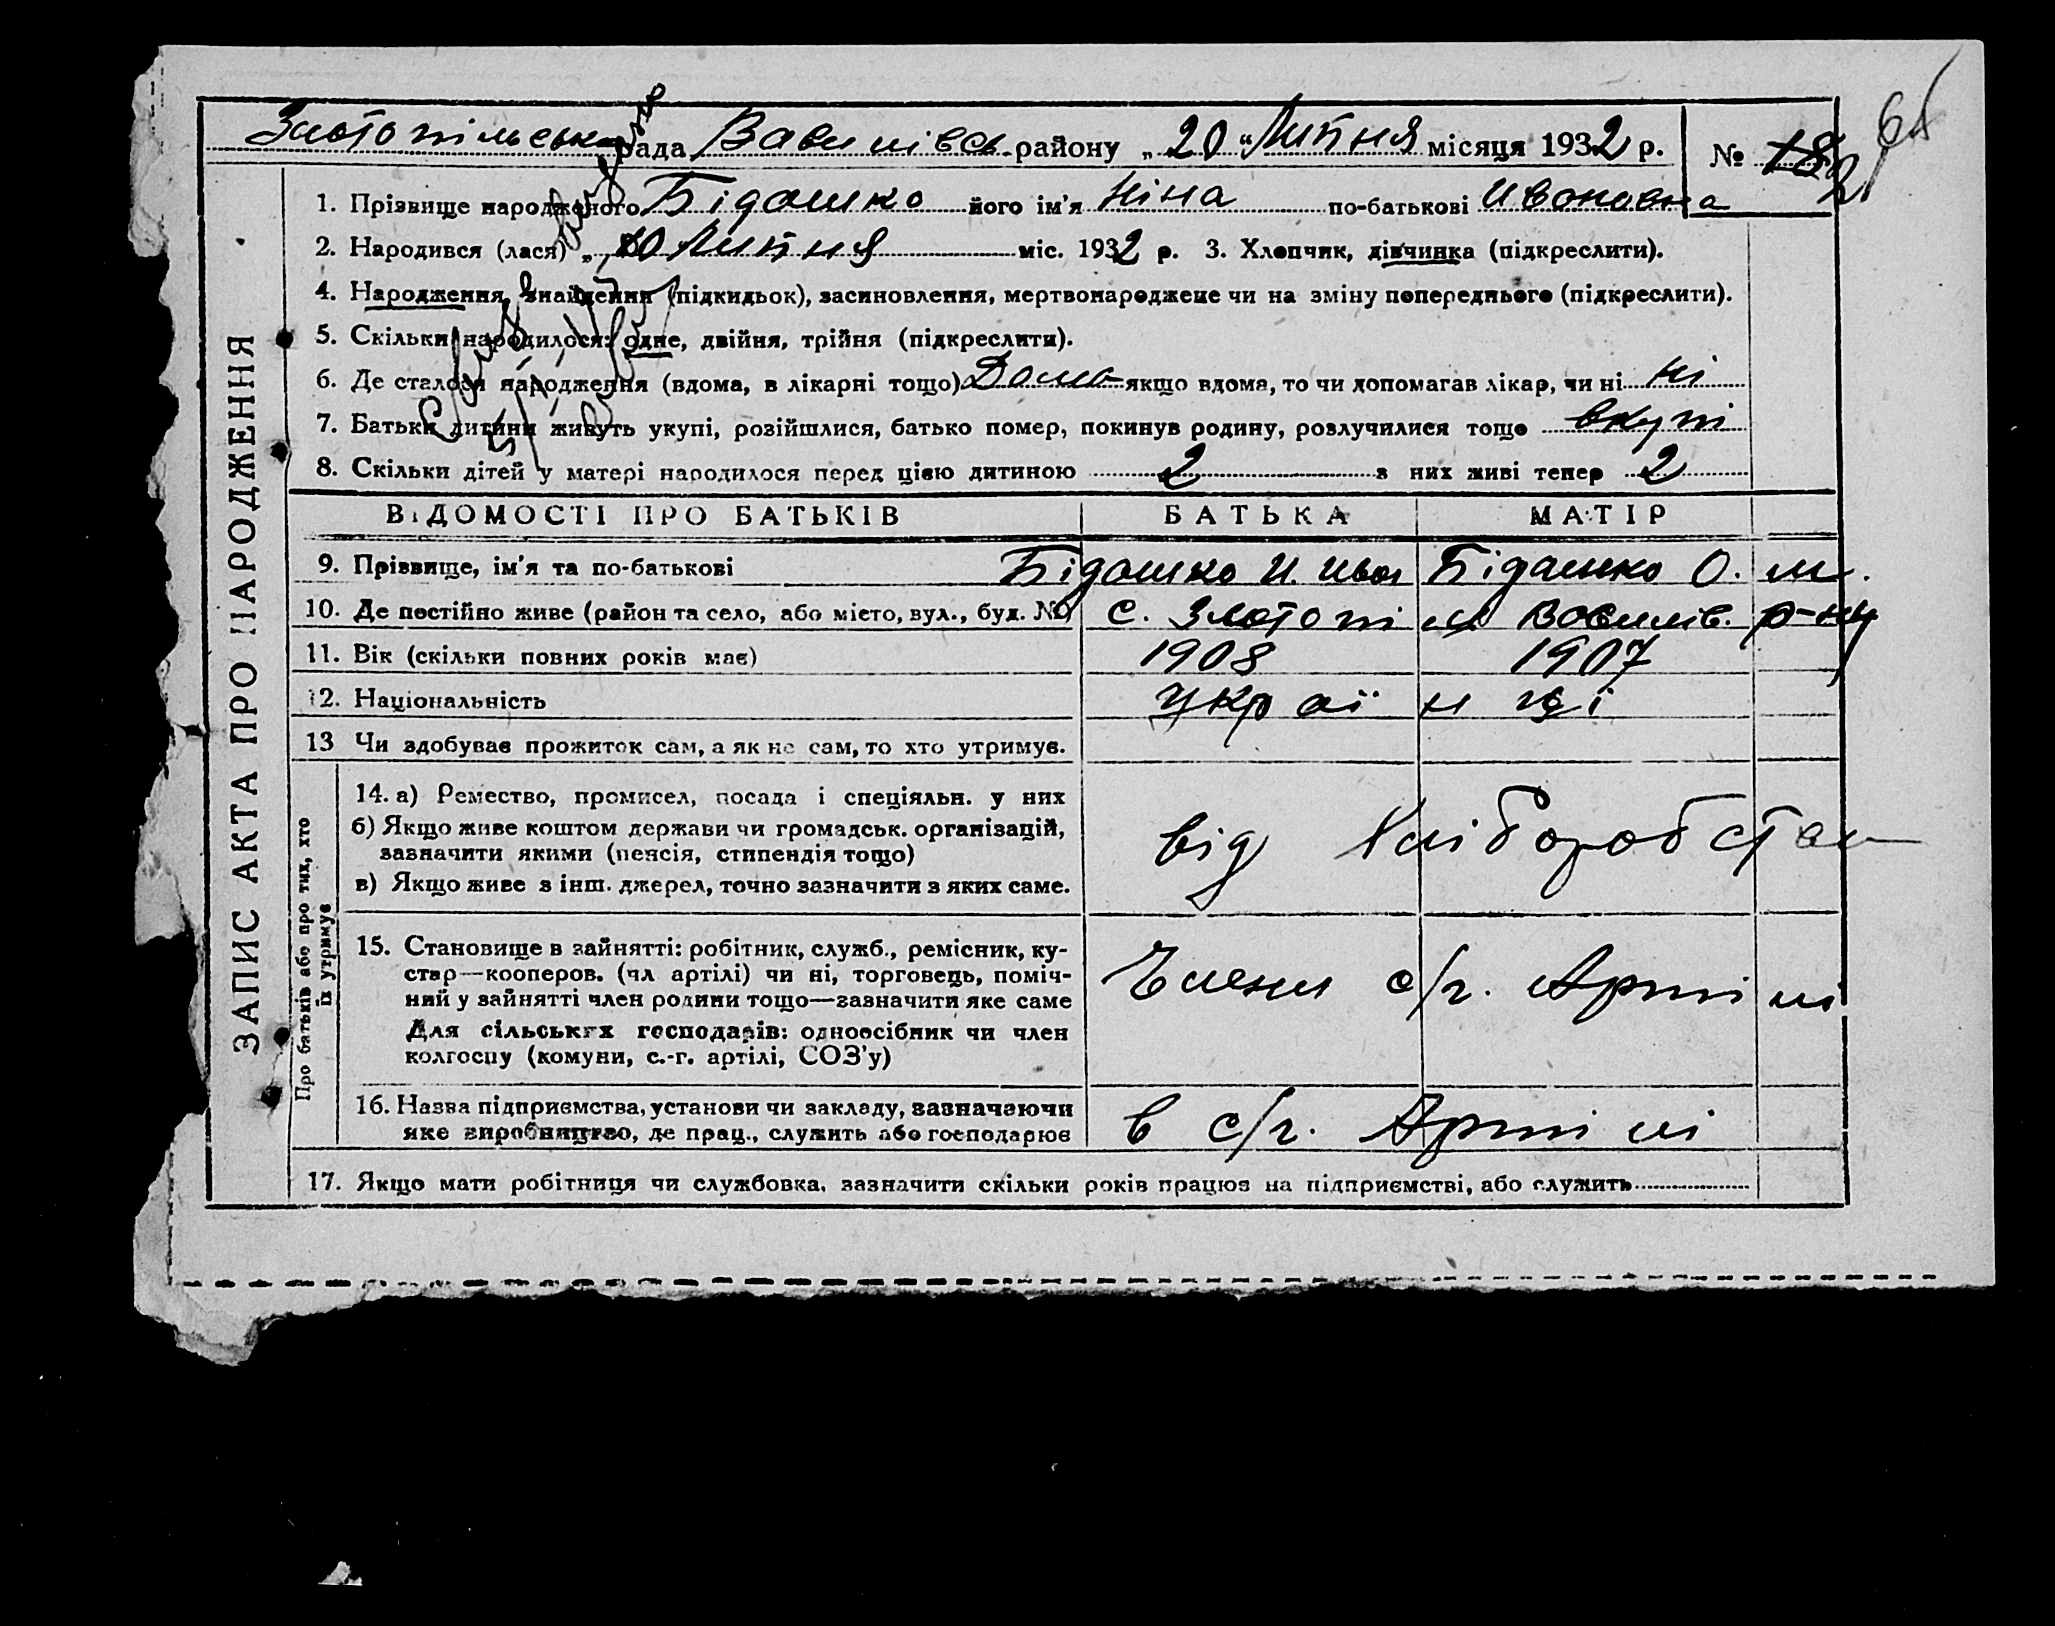 Злотопільська рада Василівськ району „20“ Липня місяця 1932 р. № 18
1. Прізвище народженого Бідашко його ім'я Ніна по-батькові Ивановна
2. Народився (лася) „ Липня міс. 1932 р. 3. Хлопчик, дівчинка (підкреслити).
4. Народження, знайдення (підкидьок), засиновлення, мертвонароджене чи на зміну попереднього (підкреслити).
5. Скільки народилося: одне, двійня, трійня (підкреслити).
6. Де сталося народження (вдома, в лікарні тощо) Дома якщо вдома, то чи допомагав лікар, чи ні ні
7. Батьки дитини живуть укупі, розійшлися, батько помер, покинув родину, розлучилися тощо вкупі
8. Скільки дітей у матері народилося перед цією дитиною 2 з них живі тепер 2
ЗАПИС АКТА ПРО НАРОДЖЕННЯ
ВІДОМОСТІ ПРО БАТЬКІВ БАТЬКА МАТІР
9. Прізвище, ім'я та по-батькові Бідашко И. Иван Бідашко О. М.
10. Де постійно живе (район та село, або місто, вул., буд. №) с. Злотопіль Василів. р-ну
11. Вік (скільки повних років має) 1908 1907
12. Національність українці
13 Чи здобував прожиток сам, а як не сам, то хто утримує.
Про батьків або про тих, хто
їх утримує
14. а) Ремество, промисел, посада і спеціяльн. у них
б) Якщо живе коштом держави чи громадськ. організацій,
зазначити якими (пенсія, стипендія тощо)
в) Якщо живе з інш. джерел, точно зазначити з яких саме.
від Хліборобства
15. Становище в зайнятті: робітник, служб., ремісник, ку-
стар—кооперов. (чл артілі) чи ні, торговець, поміч-
ний у зайнятті член родини тощо—зазначити яке саме
Для сільських господарів: одноосібник чи член
колгоспу (комуни, с.-г. артілі, СОЗ'у)
Члени с/г. Артілі
16. Назва підприємства, установи чи закладу, зазначаючи
яке виробництво, де прац., служить або господарює
в с/г. Артілі
17. Якщо мати робітниця чи службовка, зазначити скільки років працює на підприємстві, або служить